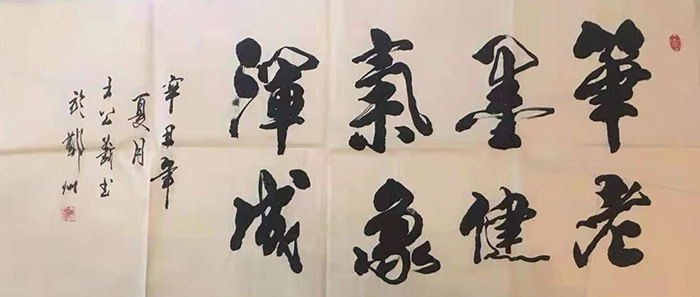 筆老
墨健
氣象
渾成
辛丑年
夏月
公書
於鄭州